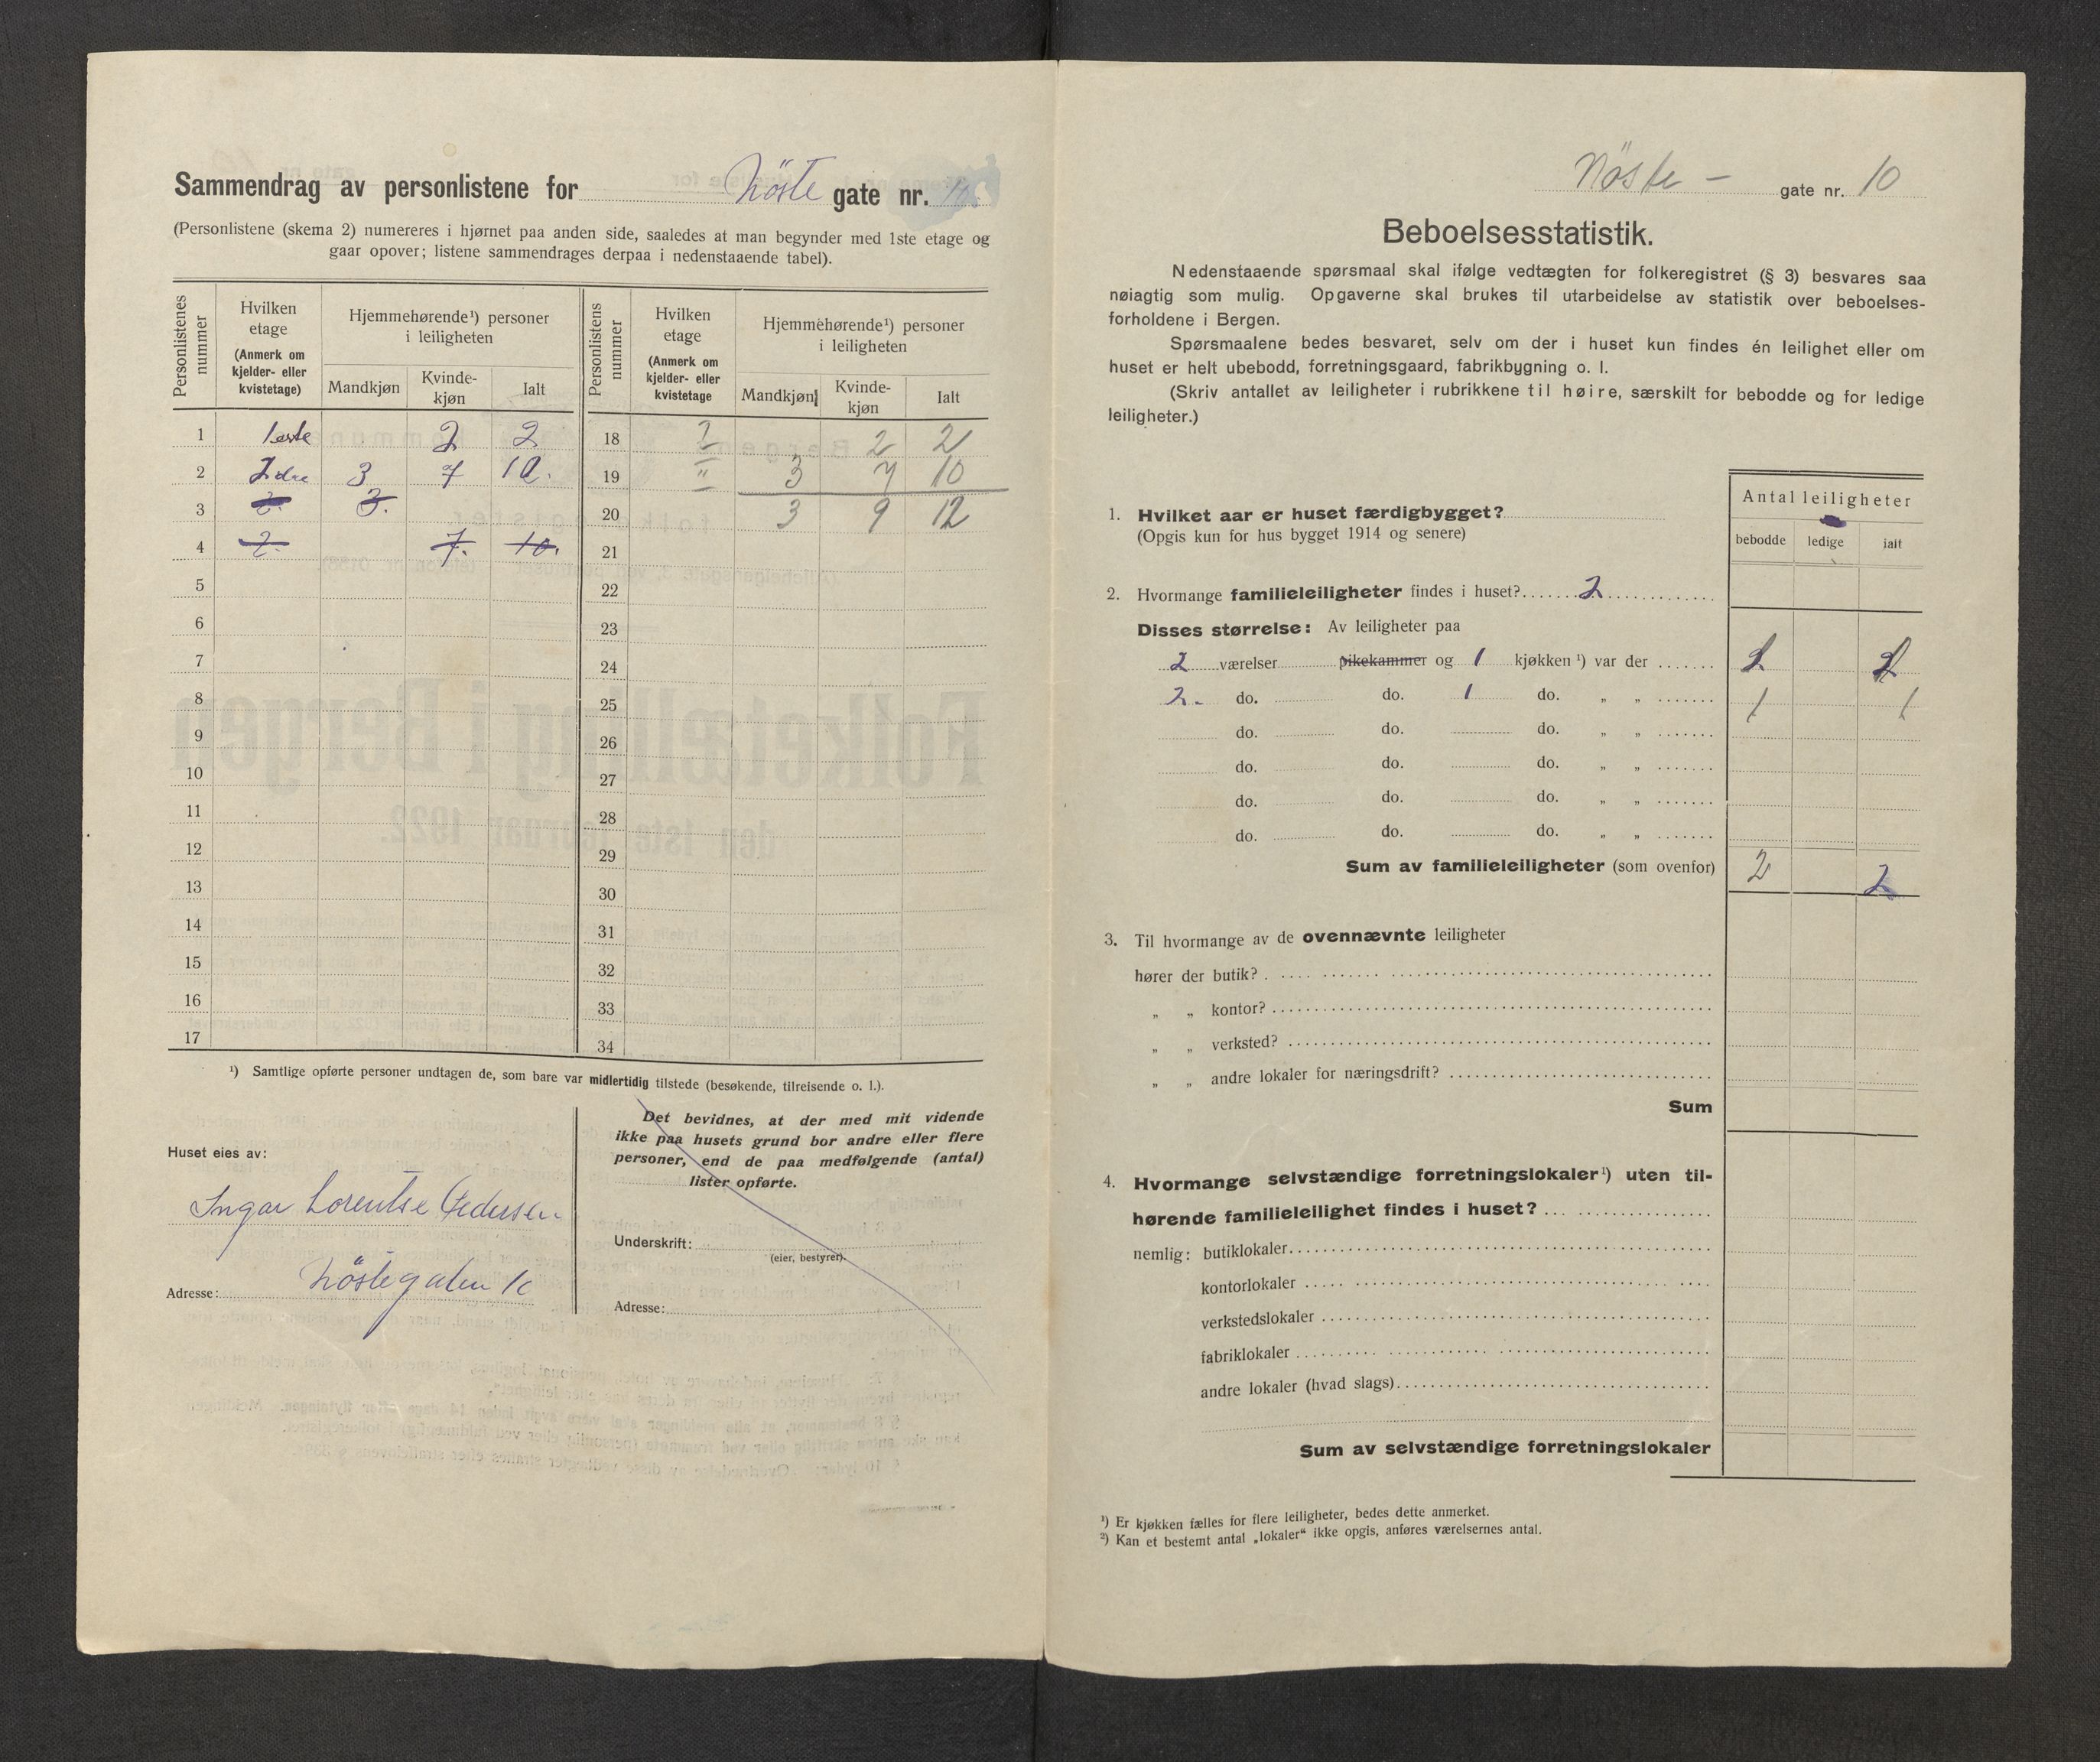 Sammendrag av personlistene for Nöste gate nr. 10
(Personlistene (skema 2) numereres i hjørnet paa anden side, saaledes at man begynder med 1ste etage og
gaar opover; listene sammendrages derpaa i nedenstaaende tabel).
Personlistenes nummer
Hvilken etage (Anmerk om kjelder- eller kvistetage)
Hjemmehørende¹) personer i leiligheten
Mandkjøn Kvinde-kjøn Ialt
Personlistens nummer
Hvilken etage (Anmerk om kjelder- eller kvistetage
Hjemmehørende¹) personer i leiligheten
Mandkjøn Kvinde-kjøn Ialt
1 1ste 2 2
2 2dre 3 7 10.
3 2. 3.
4 2. 7. 10.
5
6
7
8
9
10
11
12
13
14
15
16
17
18 2 2
19 " 3 7 10
20 3 9 12
21
22
23
24
25
26
27
28
29
30
31
32
33
34
¹) Samtlige opførte personer undtagen de, som bare var midlertidig tilstede (besøkende, tilreisende o. l.).
Huset eies av:
Ingar Lorentse Pedersen
Adresse: Nöstegaten 10
Det bevidnes, at der med mit vidende
ikke paa husets grund bor andre eller flere
personer, end de paa medfølgende (antal)
lister opførte.
Underskrift:
(eier, bestyrer).
Adresse:
Nöste - gate nr. 10
Beboelsesstatistik.
Nedenstaaende spørsmaal skal ifølge vedtægten for folkeregistret (§ 3) besvares saa
nøiagtig som mulig. Opgaverne skal brukes til utarbeidelse av statistik over beboelses-
forholdene i Bergen.
Spørsmaalene bedes besvaret, selv om der i huset kun findes én leilighet eller om
huset er helt ubebodd, forretningsgaard, fabrikbygning o. l.
(Skriv antallet av leiligheter i rubrikkene til høire, særskilt for bebodde og for ledige
leiligheter.)
Antal leiligheter
bebodde ledige ialt
1. Hvilket aar er huset færdigbygget?
(Opgis kun for hus bygget 1914 og senere)
2. Hvormange familieleiligheter findes i huset? 2
Disses størrelse: Av leiligheter paa
2 værelser pikekammer og 1 kjøkken ¹) var der
2. do. do. 1 do. „ „ 1 1
do. do. do. „ „
do. do. do. „ „
do. do. do. „ „
do. do. do. „ „
Sum av familieleiligheter (som ovenfor) 2 2
3. Til hvormange av de ovennævnte leiligheter
hører der butik?
„ „ kontor?
„ „ verksted?
„ „ andre lokaler for næringsdrift?
Sum
4. Hvormange selvstændige forretningslokaler¹) uten til-
hørende familieleilighet findes i huset?
nemlig: butiklokaler
kontorlokaler
verkstedslokaler
fabriklokaler
andre lokaler (hvad slags)
Sum av selvstændige forretningslokaler
¹) Er kjøkken fælles for flere leiligheter, bedes dette anmerket.
²) Kan et bestemt antal „lokaler“ ikke opgis, anføres værelsernes antal.